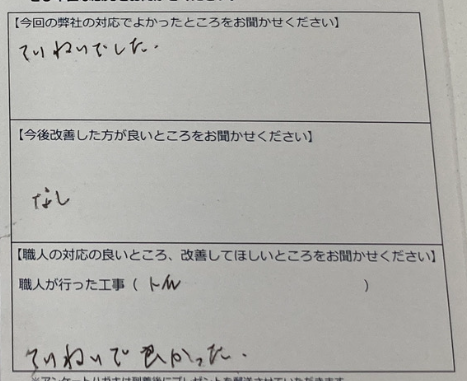 【今回の弊社の対応でよかったところをお聞かせください】
ていねいでした.
【今後改善した方が良いところをお聞かせください】
なし
【職人の対応の良いところ、改善してほしいところをお聞かせください】
職人が行った工事（トイレ）
ていねいで良かった.
※アンケートハガキは到着後にプレゼントを郵送させていただきます